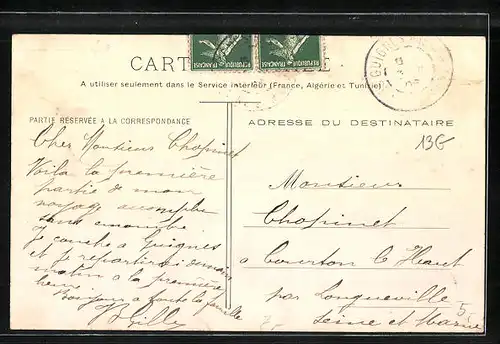 REPUBLIQUE FRANÇAISE REPUBLIQUE FRANÇAISE
CART
GUIGNES
A utiliser seulement dans le Service intérieur (France, Algérie et Tunisie)
PARTIE RÉSERVÉE A LA CORRESPONDANCE
ADRESSE DU DESTINATAIRE
13G
Cher Monsieur Chopinet
Voila la première
partie de mon
voyage accomplie
sans
je couche a Guignes
et je repartirai demain
matin a la première
heure
Bonjour a toute la famille
Gilly
Monsieur
Chopinet
a Courton le Haut
par Longueville
Seine et Marne